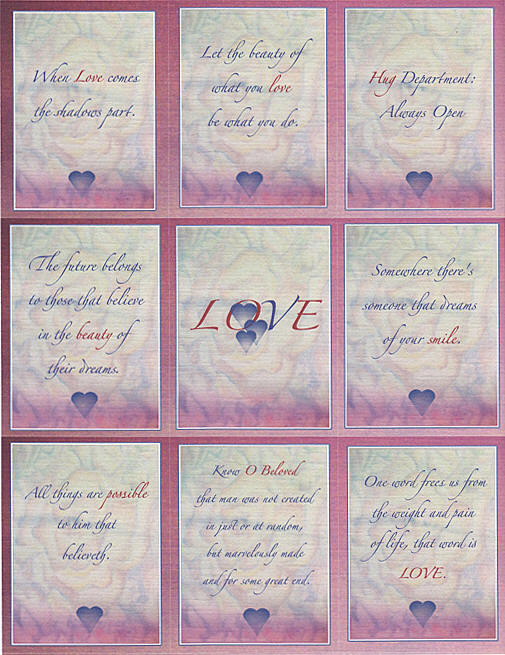 When Love comes
the shadows part.
Let the beauty of
what you love
be what you do.
Hug Department:
Always Open
The future belongs
to those that believe
in the beauty of
their dreams.
LOVE
Somewhere there's
someone that dreams
of your smile.
All things are possible
to him that
believeth.
Know O Beloved
that man was not created
in just or at random,
but marvelously made
and for some great end.
One word frees us from
the weight and pain
of life, that word is
LOVE.